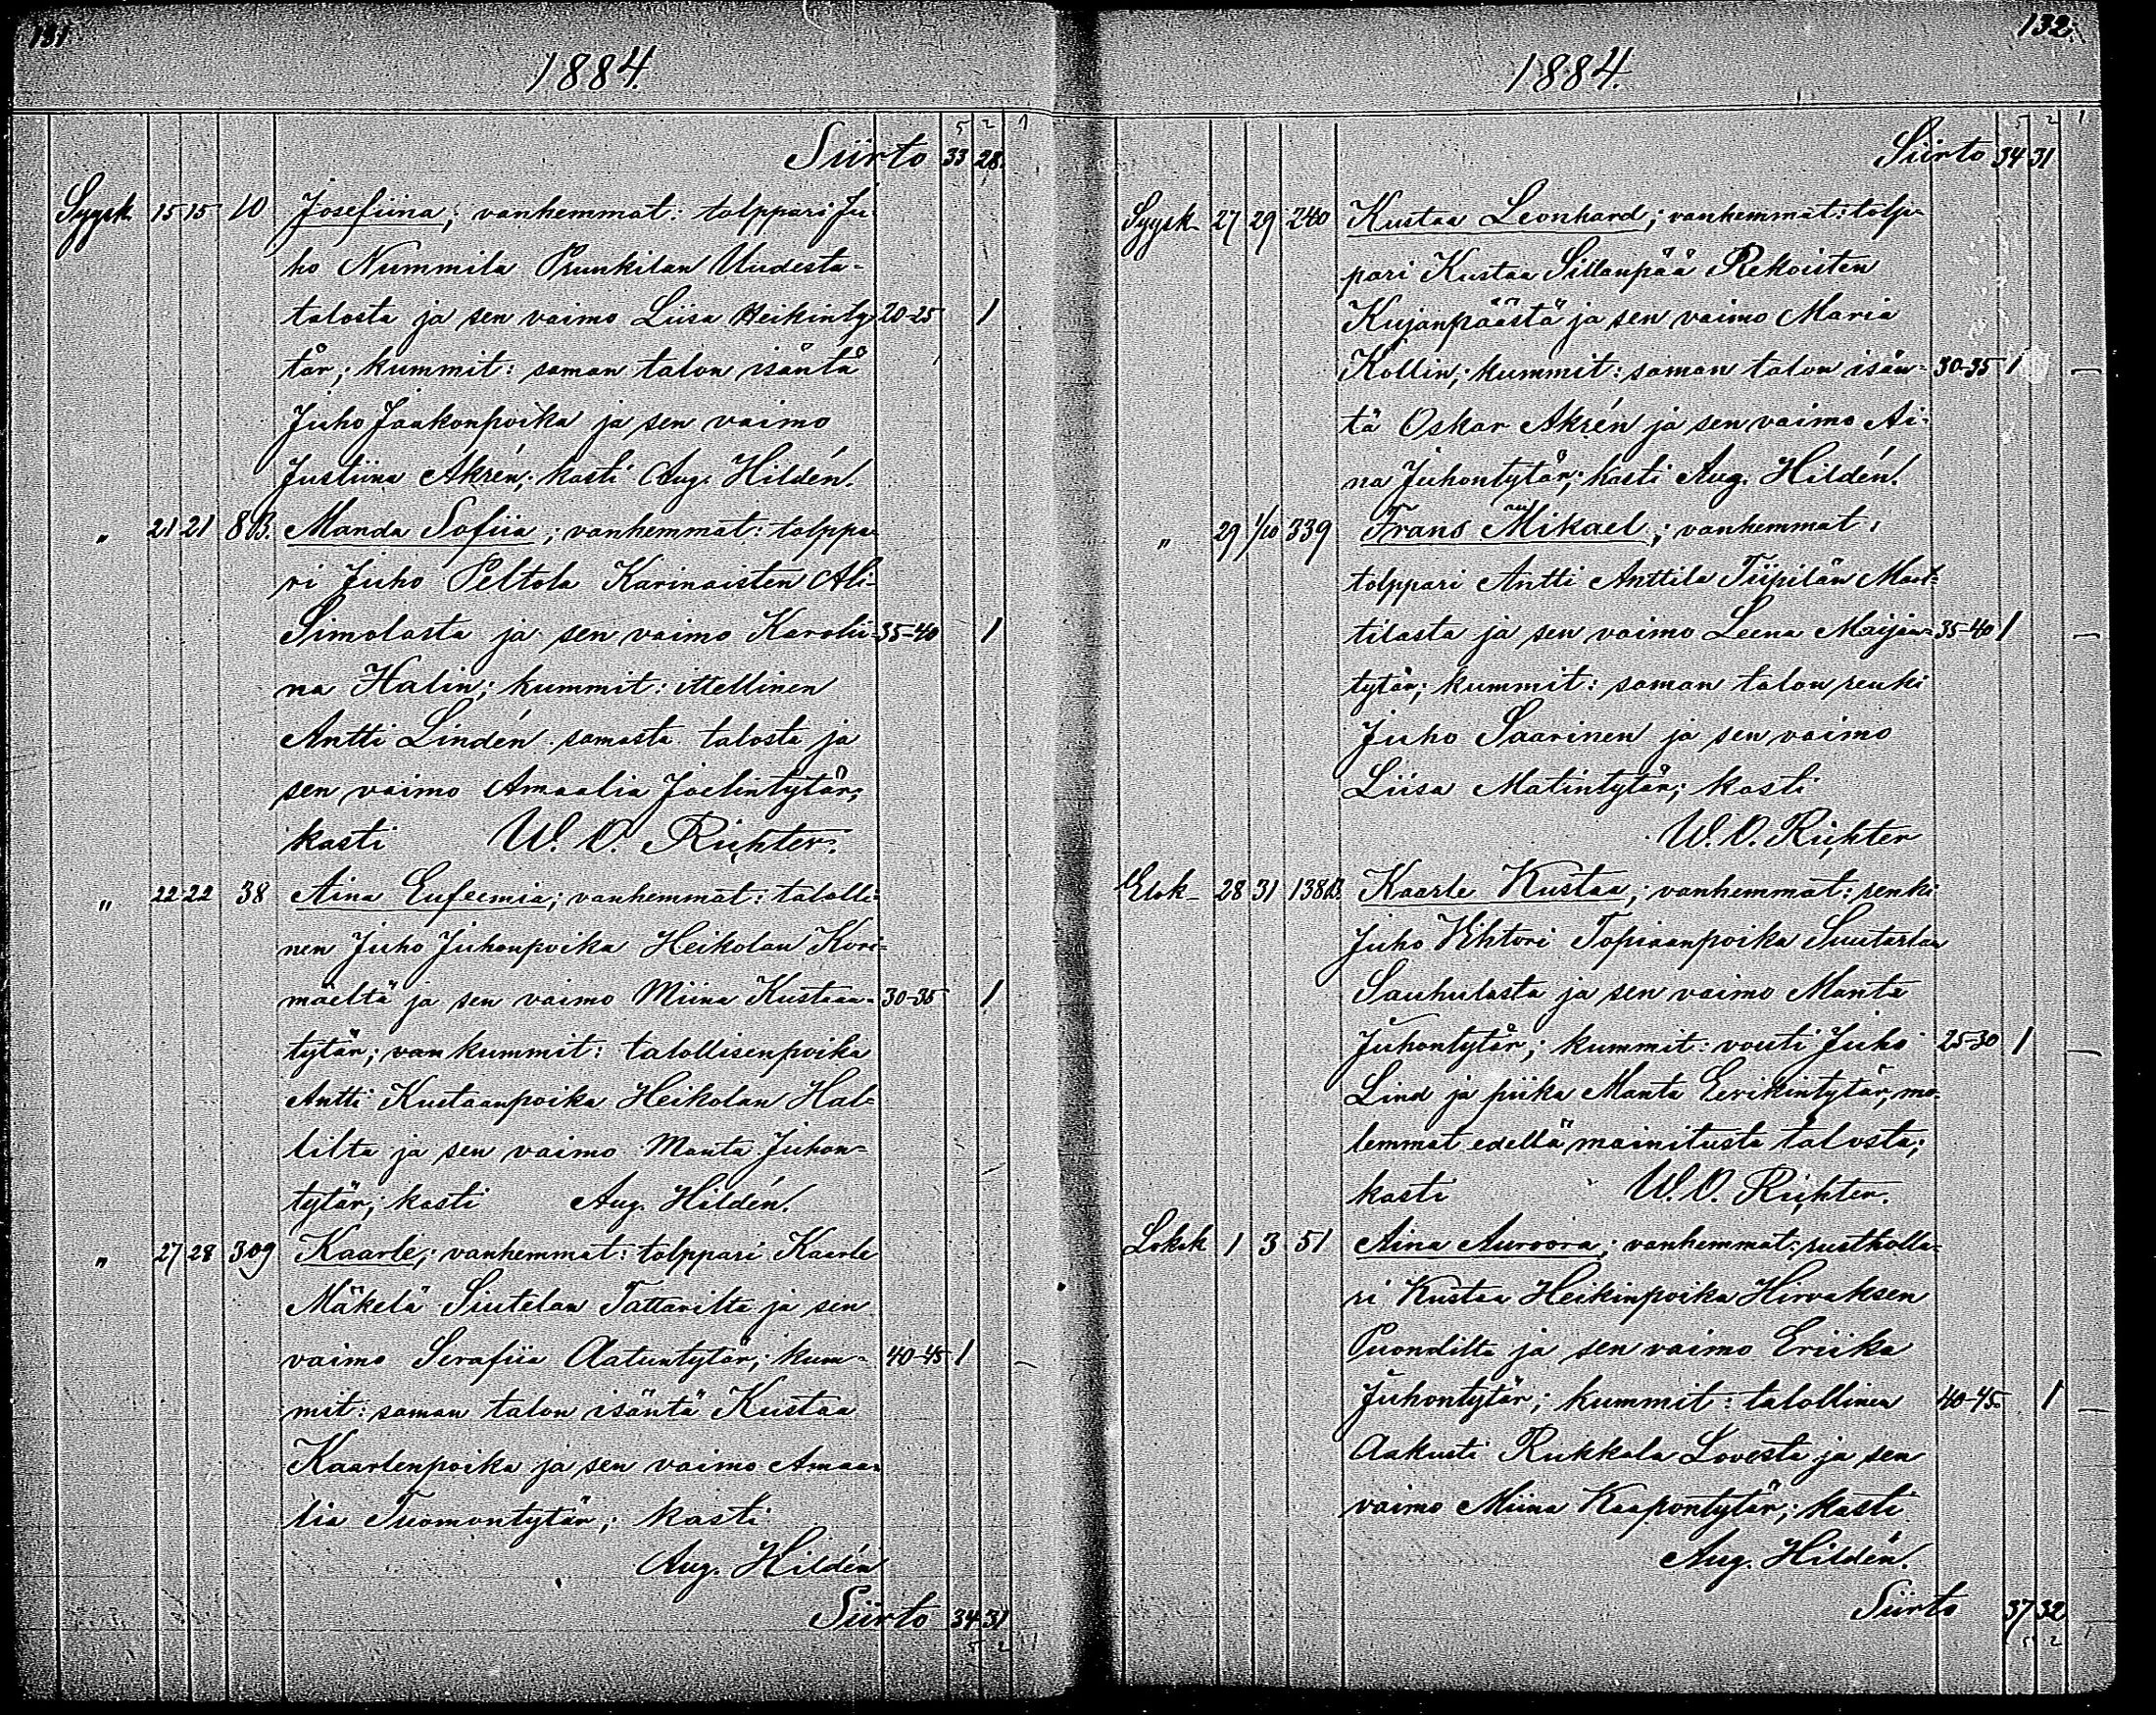 131.
1884.
5 2 1
Siirto 33 28.
Syysk. 15 15 10 Josefiina; vanhemmat: torppari Ju-
ho Nummila Prunkilan Uudesta-
talosta ja sen vaimo Liisa Heikinty- 20-25 1
tär; kummit: saman talon isäntä
Juho Jaakonpoika ja sen vaimo
Justiina Akrén; kasti Aug. Hildén.
" 21 21 8 B. Manda Sofiia; vanhemmat: torppa-
ri Juho Peltola Karinaisten Ali-
Simolasta ja sen vaimo Karolii- 35-40 1
na Halin; kummit: ittellinen
Antti Lindén samasta talosta ja
sen vaimo Amaalia Joelintytär;
kasti W. O. Richter.
" 22 22 38 Aina Eufeemia; vanhemmat: talolli-
nen Juho Juhonpoika Heikolan Kori-
mäeltä ja sen vaimo Miina Kustaan- 30-35 1
tytär; van kummit: talollisenpoika
Antti Kustaanpoika Heikolan Hal-
lilta ja sen vaimo Manta Juhon-
tytär; kasti Aug. Hildén.
" 27 28 309 Kaarle; vanhemmat: torppari Kaarle
Mäkelä Siutelan Tattarilta ja sen
vaimo Serafiia Aatuntytär; kum- 40-45 1
mit: saman talon isäntä Kustaa
Kaarlenpoika ja sen vaimo Amaa-
lia Tuomontytär; kasti
Aug. Hildén
Siirto 34 31
5 2 1
132.
1884.
5 2 1
Siirto 34 31
Syysk. 27 29 240 Kustaa Leonhard; vanhemmat: torp-
pari Kustaa Sillanpää Rekoisten
Kujanpäästä ja sen vaimo Maria
Kollin; kummit: saman talon isän- 30-35 1
tä Oskar Akrén ja sen vaimo Ai-
na Juhontytär; kasti Aug. Hildén.
" 29 1/10 339 Frans Mikael; vanhemmat:
torppari Antti Anttila Tiipilän Mart-
tilasta ja sen vaimo Leena Maijan- 35-40 1
tytär; kummit: saman talon renki
Juho Saarinen ja sen vaimo
Liisa Matintytär; kasti
W. O. Richter
Elok. 28 31 138 B. Kaarle Kustaa; vanhemmat: renki
Juho Vihtori Topiaanpoika Suutarlan
Sauhulasta ja sen vaimo Manta
Juhontytär; kummit: vouti Juho 25-30 1
Lind ja piika Manta Eerikintytär, mo-
lemmat edellä mainitusta talosta;
kasti W. O. Richter.
Lokak 1 3 51 Aina Auroora; vanhemmat: rustholla-
ri Kustaa Heikinpoika Hirvaksen
Puondilta ja sen vaimo Eriika
Juhontytär; kummit: talollinen 40-45 1
Aakusti Rukkala Lovesta ja sen
vaimo Miina Kaapontytär; kasti
Aug. Hildén.
Siirto 37 32
5 2 1